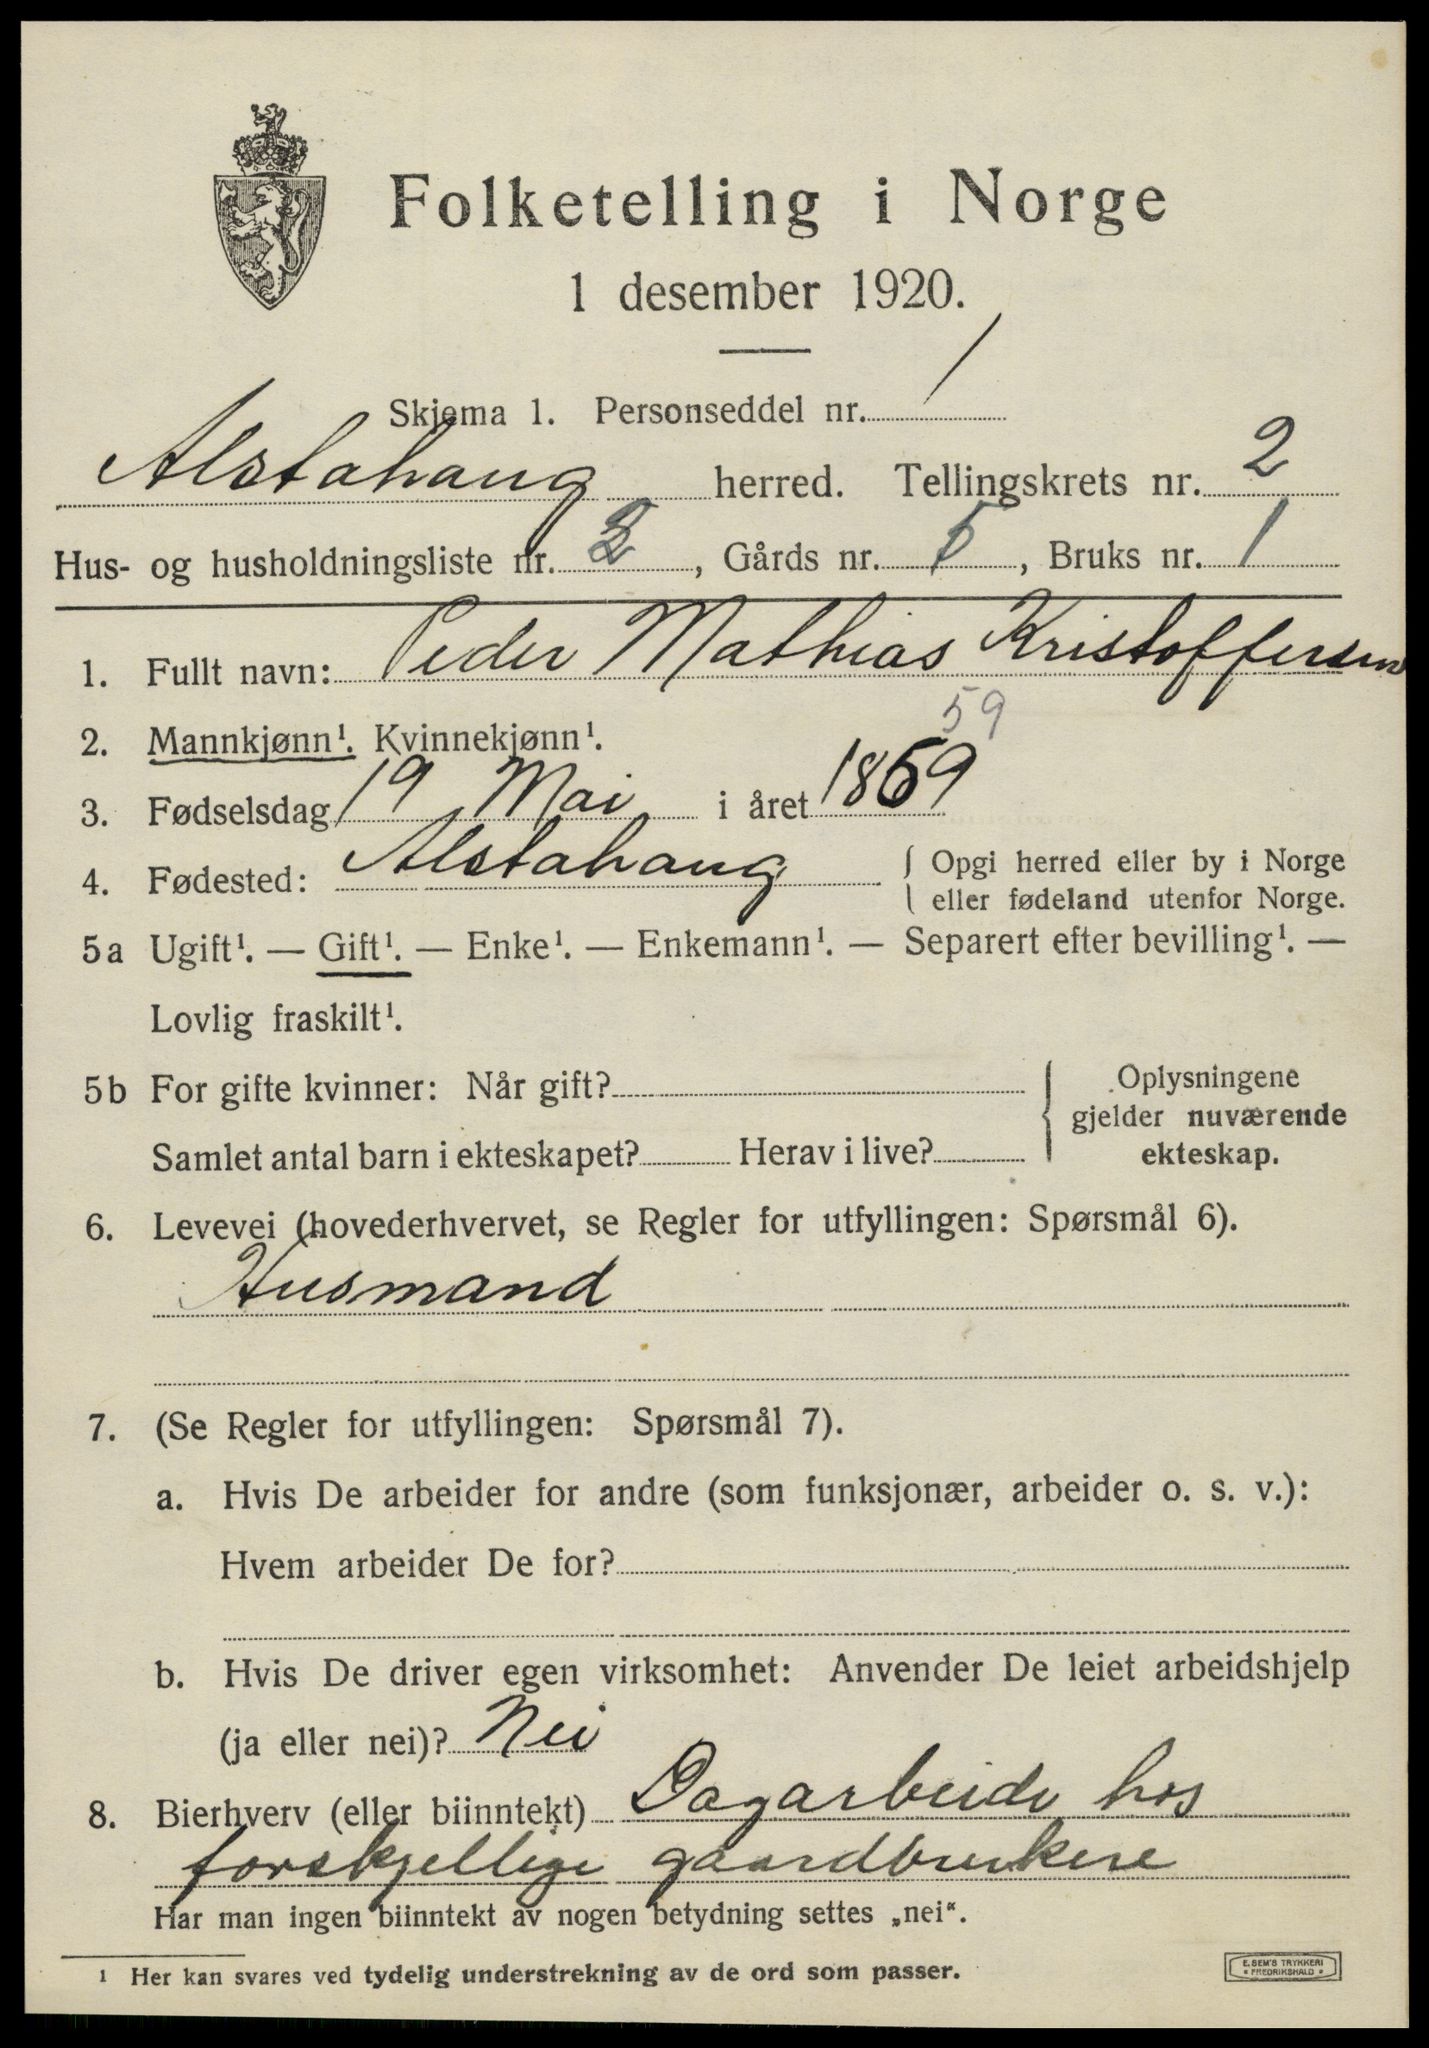 Folketelling i Norge
1 desember 1920.
Skjema 1. Personseddel nr. 1
Alstahaug herred. Tellingskrets nr. 2
Hus- og husholdningsliste nr. 2, Gårds nr. 5, Bruks nr. 1
1. Fullt navn: Peder Mathias Kristoffersen
59
2. Mannkjønn¹. Kvinnekjønn¹.
3. Fødselsdag 19 Mai i året 1859
4. Fødested: Alstahaug { Opgi herred eller by i Norge
eller fødeland utenfor Norge.
5a Ugift¹. — Gift¹. — Enke¹. — Enkemann¹. — Separert efter bevilling¹. —
Lovlig fraskilt¹.
5b For gifte kvinner: Når gift? { Oplysningene
gjelder nuværende
Samlet antal barn i ekteskapet? Herav i live? ekteskap.
6. Levevei (hovederhvervet, se Regler for utfyllingen: Spørsmål 6).
Husmand
7. (Se Regler for utfyllingen: Spørsmål 7).
a. Hvis De arbeider for andre (som funksjonær, arbeider o. s. v.):
Hvem arbeider De for?
b. Hvis De driver egen virksomhet: Anvender De leiet arbeidshjelp
(ja eller nei)? Nei
8. Bierhverv (eller biinntekt) Dagarbeide hos
forskjellige gaardbrukere
Har man ingen biinntekt av nogen betydning settes „nei“.
¹ Her kan svares ved tydelig understrekning av de ord som passer.
E. SEM'S TRYKKERI
• FREDRIKSHALD •